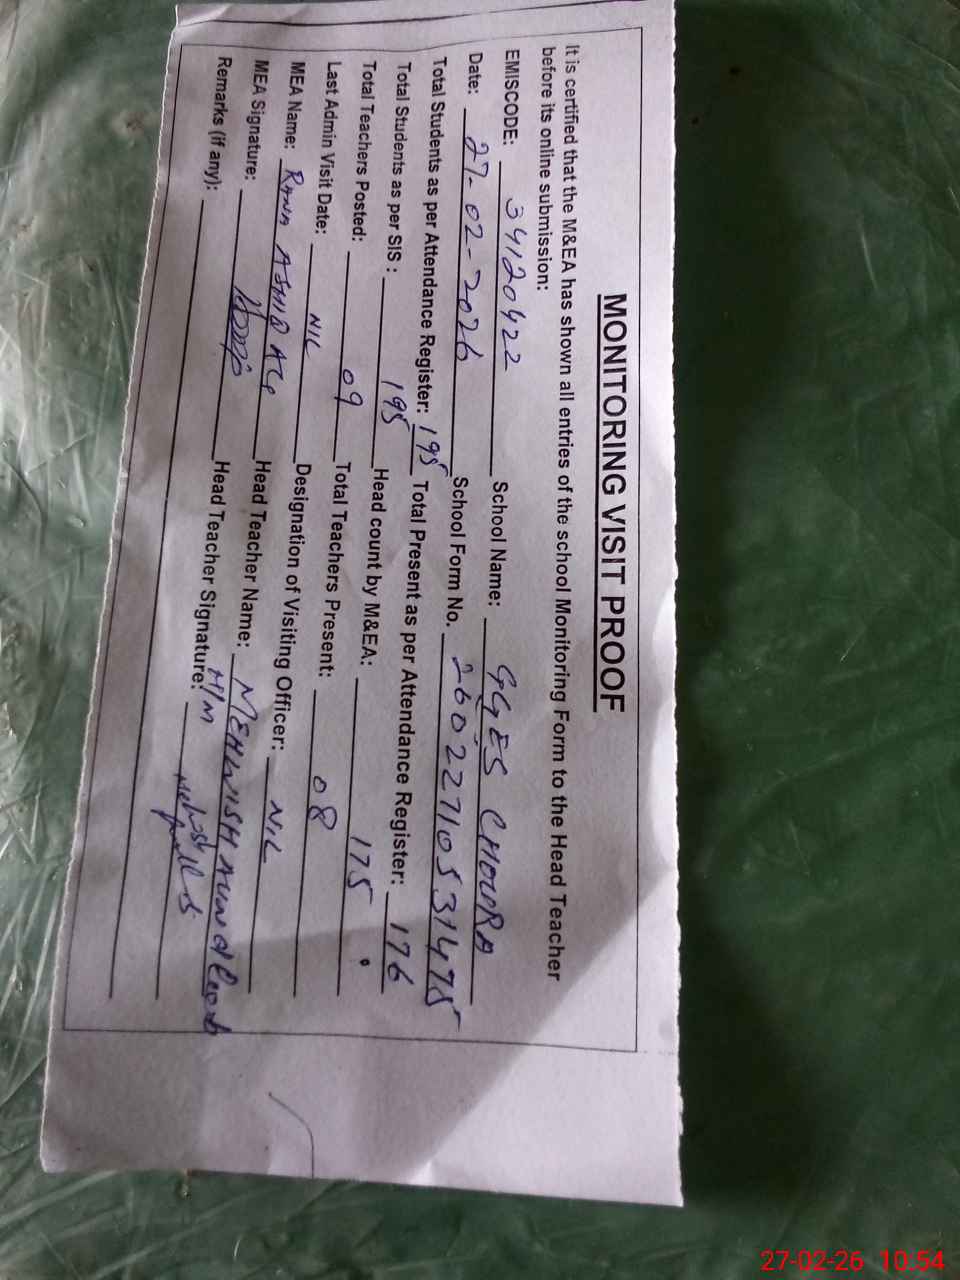 MONITORING VISIT PROOF
It is certified that the M&EA has shown all entries of the school Monitoring Form to the Head Teacher
before its online submission:
EMISCODE: 34120422 School Name: GGES CHOURA
Date: 27-02-2026 School Form No. 26022710531475
Total Students as per Attendance Register: 195 Total Present as per Attendance Register: 176
Total Students as per SIS : 195 Head count by M&EA: 175
Total Teachers Posted: 09 Total Teachers Present: 08
Last Admin Visit Date: NIL Designation of Visiting Officer: NIL
MEA Name: RANA ASHIQ ALI Head Teacher Name: MEHWISH
MEA Signature: Head Teacher Signature: H/M
Remarks (if any):
27-02-26 10:54